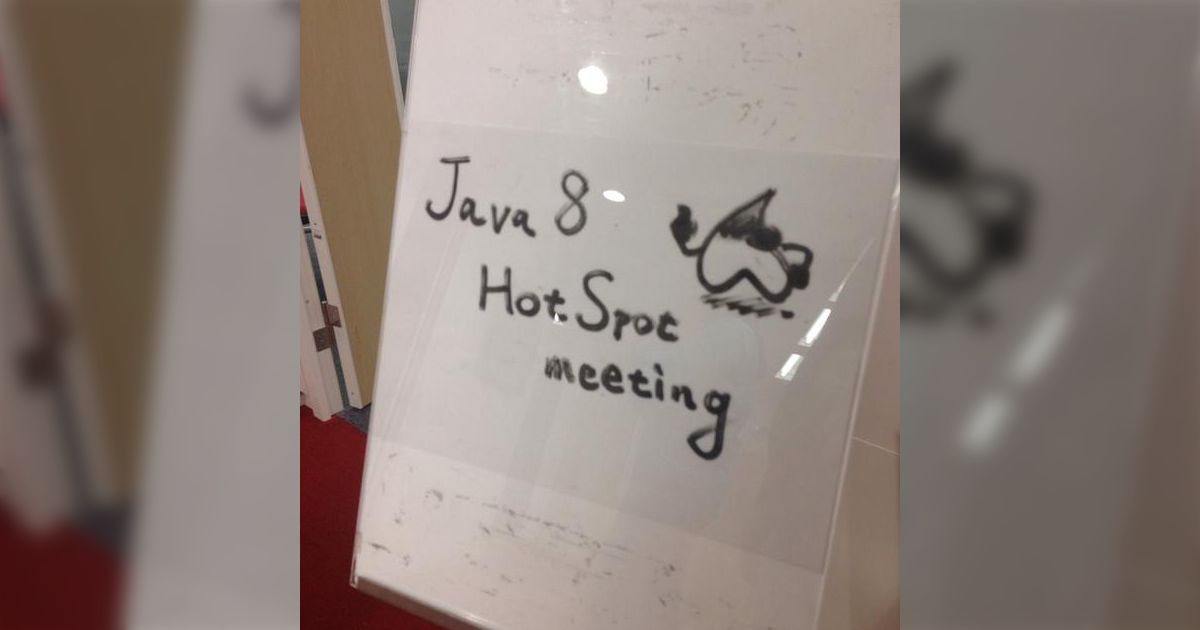 Java 8
HotSpot
meeting